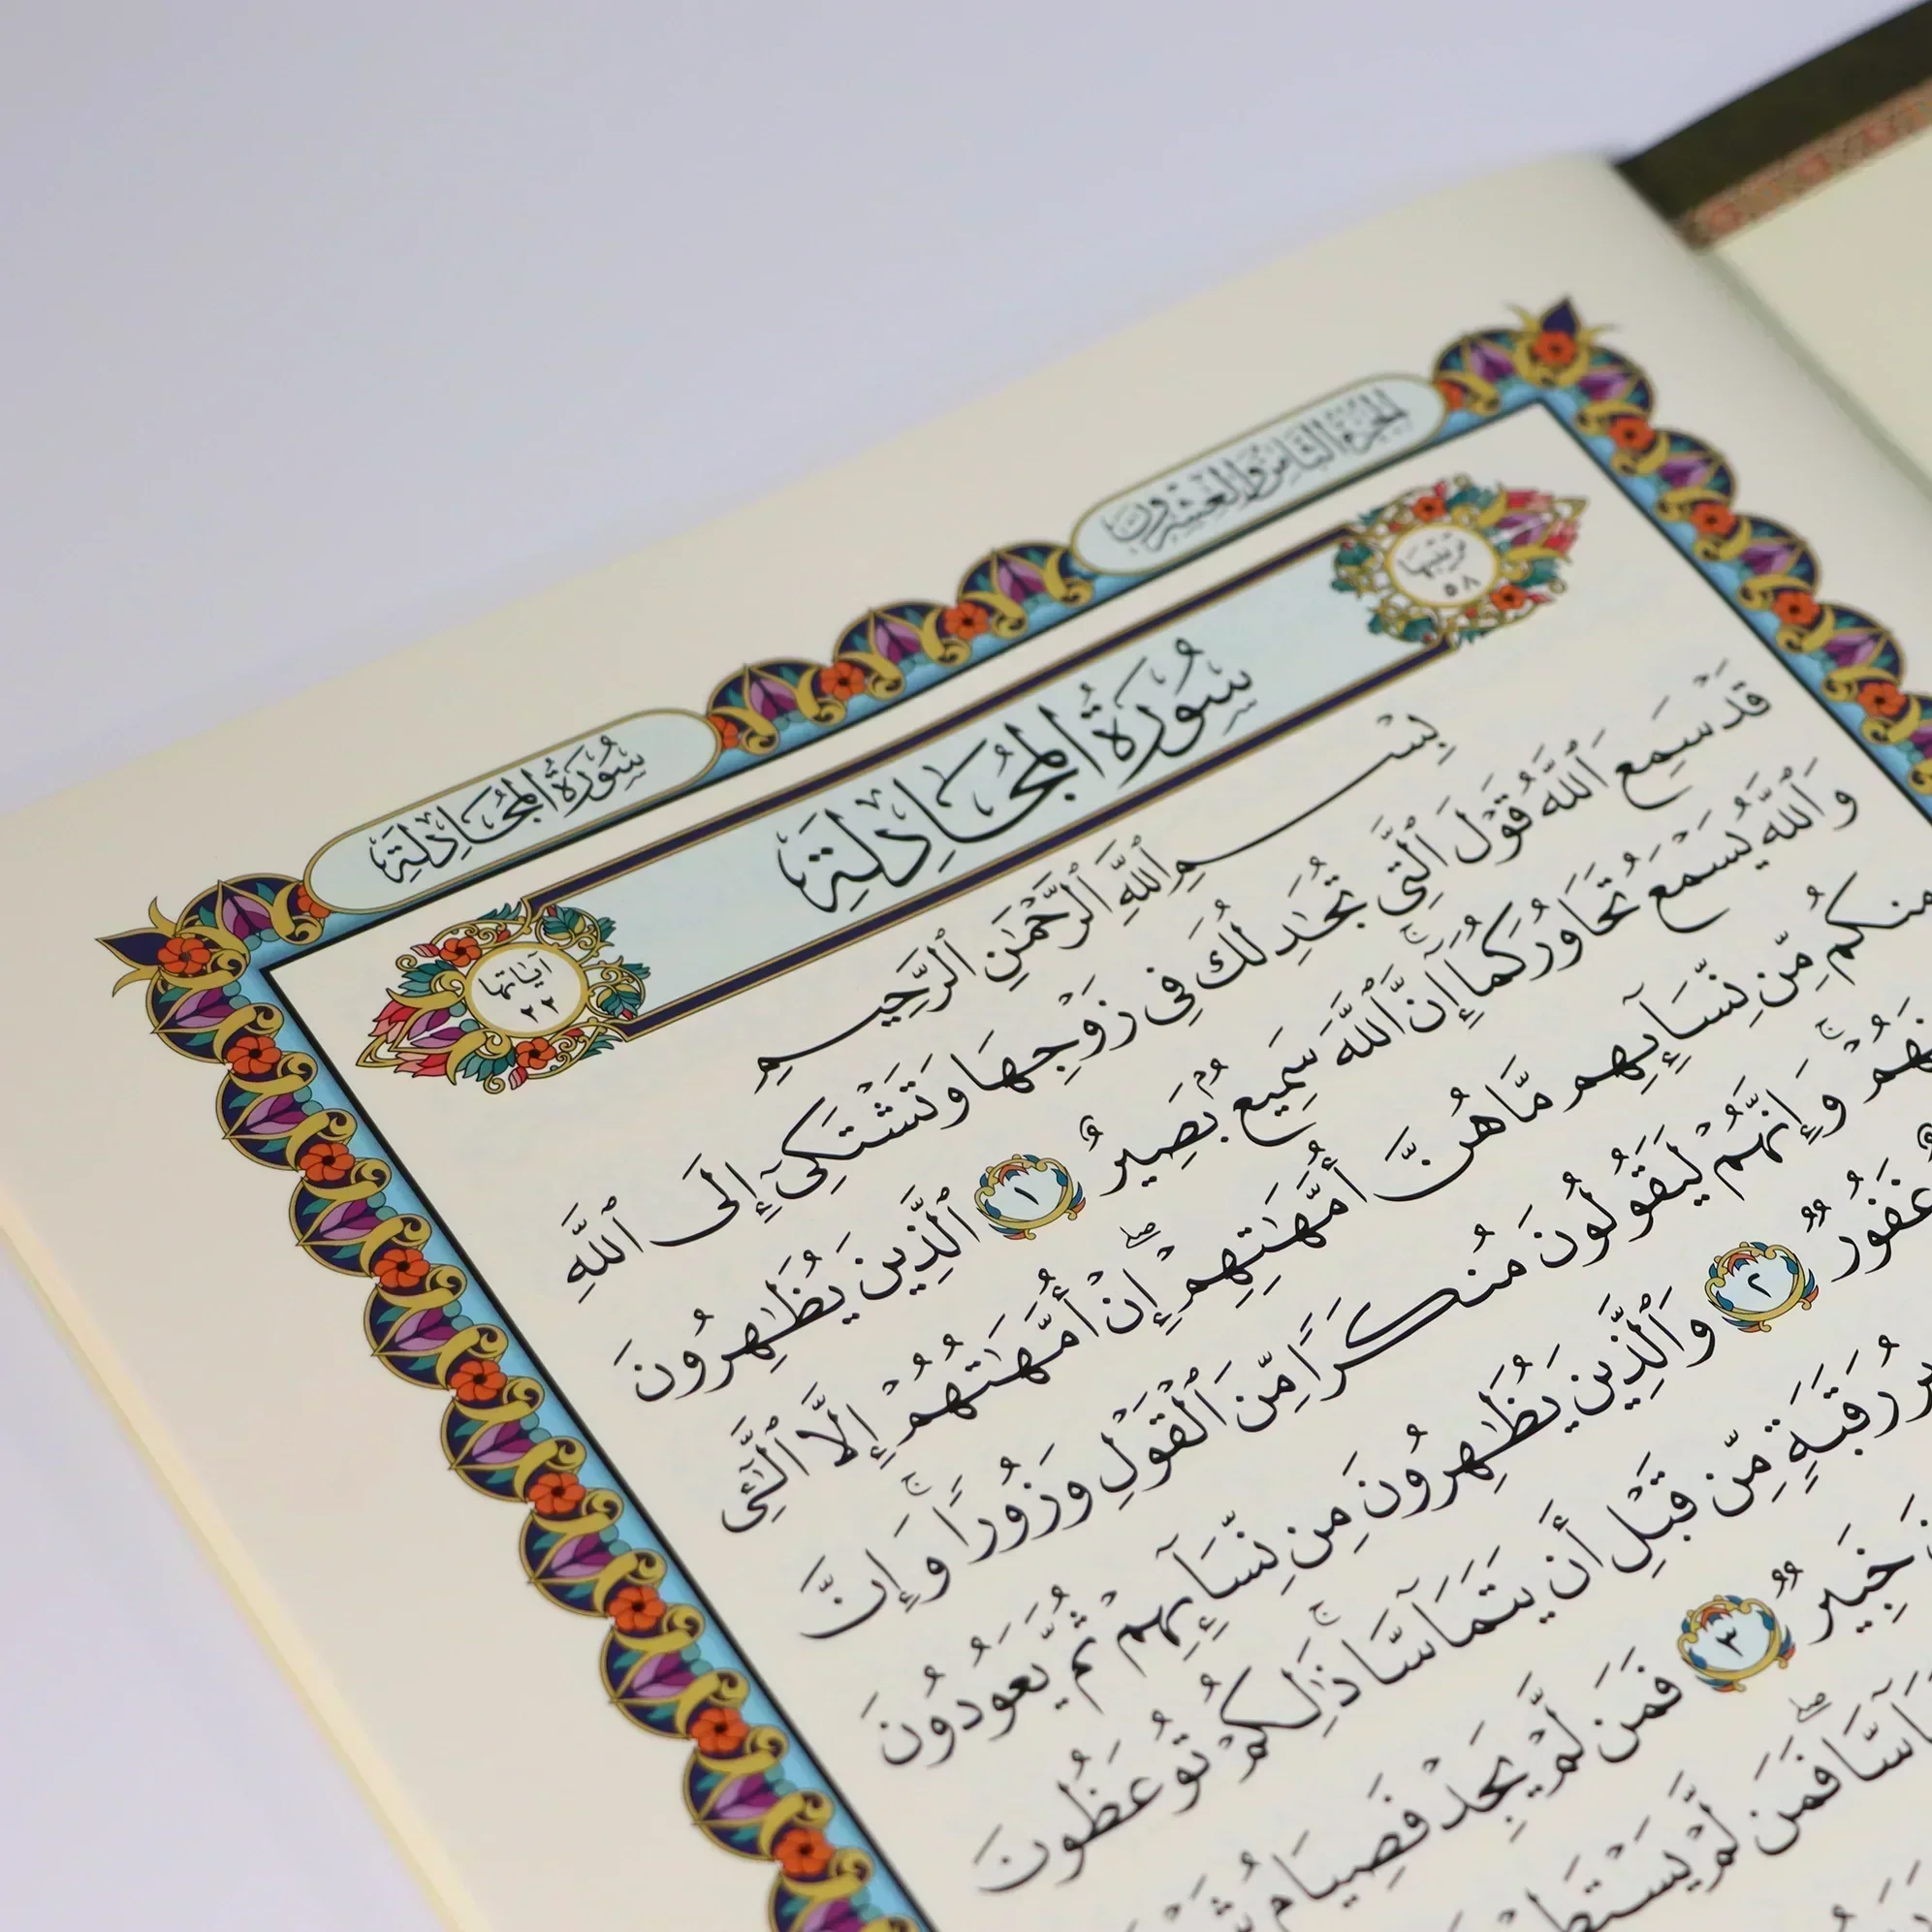 الجزء الثامن والعشرون
سُورَةُ المُجَادلَةِ
ترتيبها
٥٨
سُورَةُ المُجَادِلَةِ
آياتها
٢٢
بِسْمِ ٱللَّهِ ٱلرَّحْمَٰنِ ٱلرَّحِيمِ
قَدْ سَمِعَ ٱللَّهُ قَوْلَ ٱلَّتِى تُجَٰدِلُكَ فِى زَوْجِهَا وَتَشْتَكِىٓ إِلَى ٱللَّهِ
وَٱللَّهُ يَسْمَعُ تَحَاوُرَكُمَآ ۚ إِنَّ ٱللَّهَ سَمِيعٌۢ بَصِيرٌ ١ ٱلَّذِينَ يُظَٰهِرُونَ
مِنكُم مِّن نِّسَآئِهِم مَّا هُنَّ أُمَّهَٰتِهِمْ ۖ إِنْ أُمَّهَٰتُهُمْ إِلَّا ٱلَّٰٓـِٔى
وَإِنَّهُمْ لَيَقُولُونَ مُنكَرًا مِّنَ ٱلْقَوْلِ وَزُورًا ۚ وَإِنَّ
غَفُورٌ ٢ وَٱلَّذِينَ يُظَٰهِرُونَ مِن نِّسَآئِهِمْ ثُمَّ يَعُودُونَ
رَقَبَةٍ مِّن قَبْلِ أَن يَتَمَآسَّا ۚ ذَٰلِكُمْ تُوعَظُونَ
خَبِيرٌ ٣ فَمَن لَّمْ يَجِدْ فَصِيَامُ
فَمَن لَّمْ